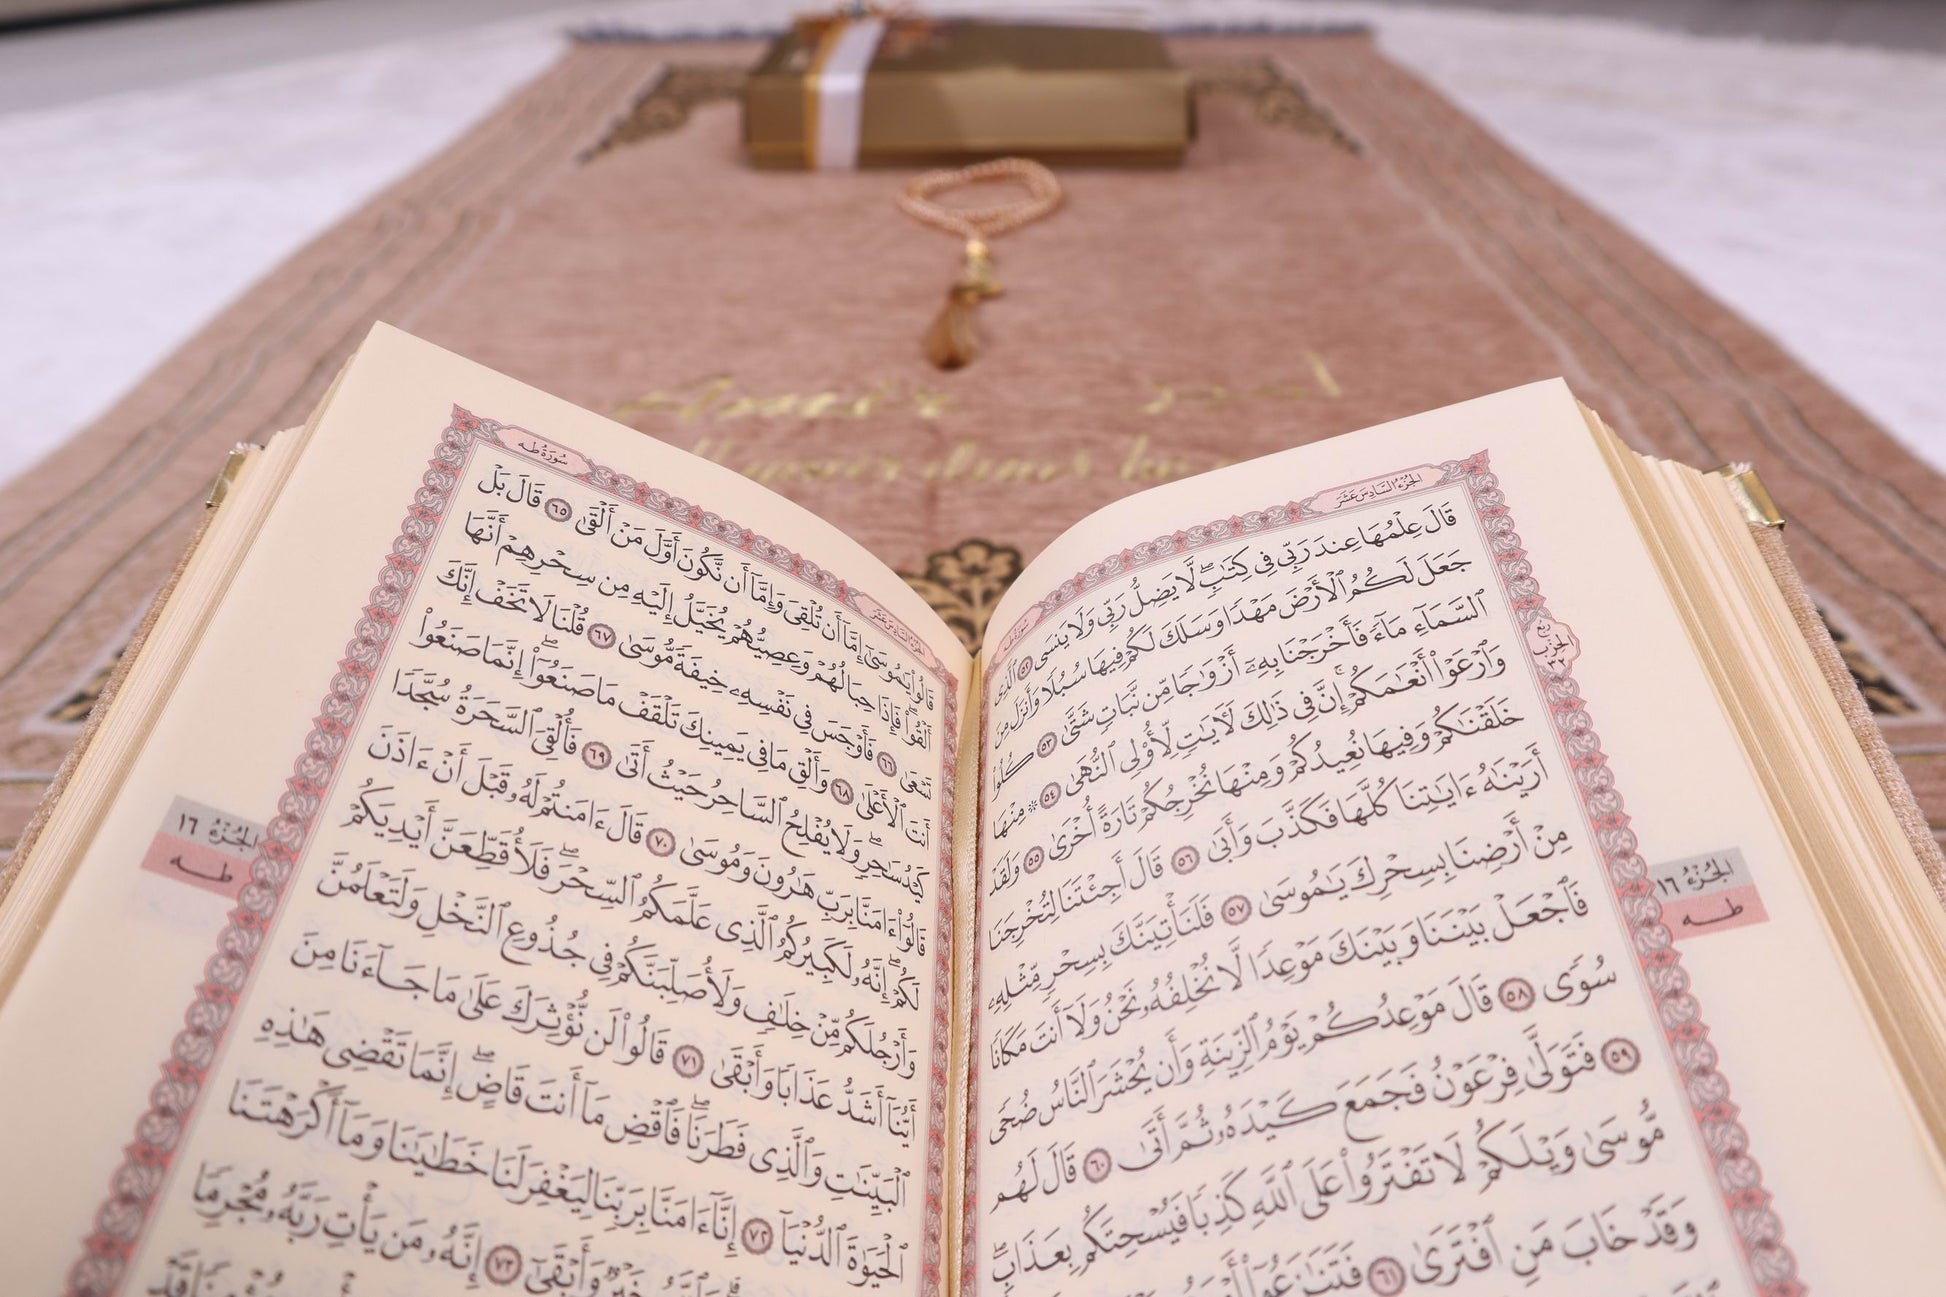 الجزء السادس عشر
سورة طه
قَالَ عِلْمُهَا عِندَ رَبِّى فِى كِتَٰبٍۖ لَّا يَضِلُّ رَبِّى وَلَا يَنسَى ٥٢ ٱلَّذِى
جَعَلَ لَكُمُ ٱلْأَرْضَ مَهْدًا وَسَلَكَ لَكُمْ فِيهَا سُبُلًا وَأَنزَلَ مِنَ
ٱلسَّمَآءِ مَآءً فَأَخْرَجْنَا بِهِۦٓ أَزْوَٰجًا مِّن نَّبَاتٍ شَتَّىٰ ٥٣ كُلُوا۟
وَٱرْعَوْا۟ أَنْعَٰمَكُمْۗ إِنَّ فِى ذَٰلِكَ لَءَايَٰتٍ لِّأُو۟لِى ٱلنُّهَىٰ ٥٤ ۞ مِنْهَا
خَلَقْنَٰكُمْ وَفِيهَا نُعِيدُكُمْ وَمِنْهَا نُخْرِجُكُمْ تَارَةً أُخْرَىٰ ٥٥ وَلَقَدْ
أَرَيْنَٰهُ ءَايَٰتِنَا كُلَّهَا فَكَذَّبَ وَأَبَىٰ ٥٦ قَالَ أَجِئْتَنَا لِتُخْرِجَنَا
مِنْ أَرْضِنَا بِسِحْرِكَ يَٰمُوسَىٰ ٥٧ فَلَنَأْتِيَنَّكَ بِسِحْرٍ مِّثْلِهِۦ
فَٱجْعَلْ بَيْنَنَا وَبَيْنَكَ مَوْعِدًا لَّا نُخْلِفُهُۥ نَحْنُ وَلَآ أَنتَ مَكَانًا
سُوًى ٥٨ قَالَ مَوْعِدُكُمْ يَوْمُ ٱلزِّينَةِ وَأَن يُحْشَرَ ٱلنَّاسُ ضُحًى
٥٩ فَتَوَلَّىٰ فِرْعَوْنُ فَجَمَعَ كَيْدَهُۥ ثُمَّ أَتَىٰ ٦٠ قَالَ لَهُم
مُّوسَىٰ وَيْلَكُمْ لَا تَفْتَرُوا۟ عَلَى ٱللَّهِ كَذِبًا فَيُسْحِتَكُم بِعَذَابٍۖ
وَقَدْ خَابَ مَنِ ٱفْتَرَىٰ ٦١ فَتَنَٰزَعُوٓا۟
ربع الحزب ٣٢
الجزء ١٦
طه
الجزء السادس عشر
سورة طه
قَالُوا۟ يَٰمُوسَىٰٓ إِمَّآ أَن تُلْقِىَ وَإِمَّآ أَن نَّكُونَ أَوَّلَ مَنْ أَلْقَىٰ ٦٥ قَالَ بَلْ
أَلْقُوا۟ۖ فَإِذَا حِبَالُهُمْ وَعِصِيُّهُمْ يُخَيَّلُ إِلَيْهِ مِن سِحْرِهِمْ أَنَّهَا
تَسْعَىٰ ٦٦ فَأَوْجَسَ فِى نَفْسِهِۦ خِيفَةً مُّوسَىٰ ٦٧ قُلْنَا لَا تَخَفْ إِنَّكَ
أَنتَ ٱلْأَعْلَىٰ ٦٨ وَأَلْقِ مَا فِى يَمِينِكَ تَلْقَفْ مَا صَنَعُوٓا۟ۖ إِنَّمَا صَنَعُوا۟
كَيْدُ سَٰحِرٍۖ وَلَا يُفْلِحُ ٱلسَّاحِرُ حَيْثُ أَتَىٰ ٦٩ فَأُلْقِىَ ٱلسَّحَرَةُ سُجَّدًا
قَالُوٓا۟ ءَامَنَّا بِرَبِّ هَٰرُونَ وَمُوسَىٰ ٧٠ قَالَ ءَامَنتُمْ لَهُۥ قَبْلَ أَنْ ءَاذَنَ
لَكُمْۖ إِنَّهُۥ لَكَبِيرُكُمُ ٱلَّذِى عَلَّمَكُمُ ٱلسِّحْرَۖ فَلَأُقَطِّعَنَّ أَيْدِيَكُمْ
وَأَرْجُلَكُم مِّنْ خِلَٰفٍ وَلَأُصَلِّبَنَّكُمْ فِى جُذُوعِ ٱلنَّخْلِ وَلَتَعْلَمُنَّ
أَيُّنَآ أَشَدُّ عَذَابًا وَأَبْقَىٰ ٧١ قَالُوا۟ لَن نُّؤْثِرَكَ عَلَىٰ مَا جَآءَنَا مِنَ
ٱلْبَيِّنَٰتِ وَٱلَّذِى فَطَرَنَاۖ فَٱقْضِ مَآ أَنتَ قَاضٍۖ إِنَّمَا تَقْضِى هَٰذِهِ
ٱلْحَيَوٰةَ ٱلدُّنْيَآ ٧٢ إِنَّآ ءَامَنَّا بِرَبِّنَا لِيَغْفِرَ لَنَا خَطَٰيَٰنَا وَمَآ أَكْرَهْتَنَا
خَيْرٌ وَأَبْقَىٰٓ ٧٣ إِنَّهُۥ مَن يَأْتِ رَبَّهُۥ مُجْرِمًا
الجزء ١٦
طه